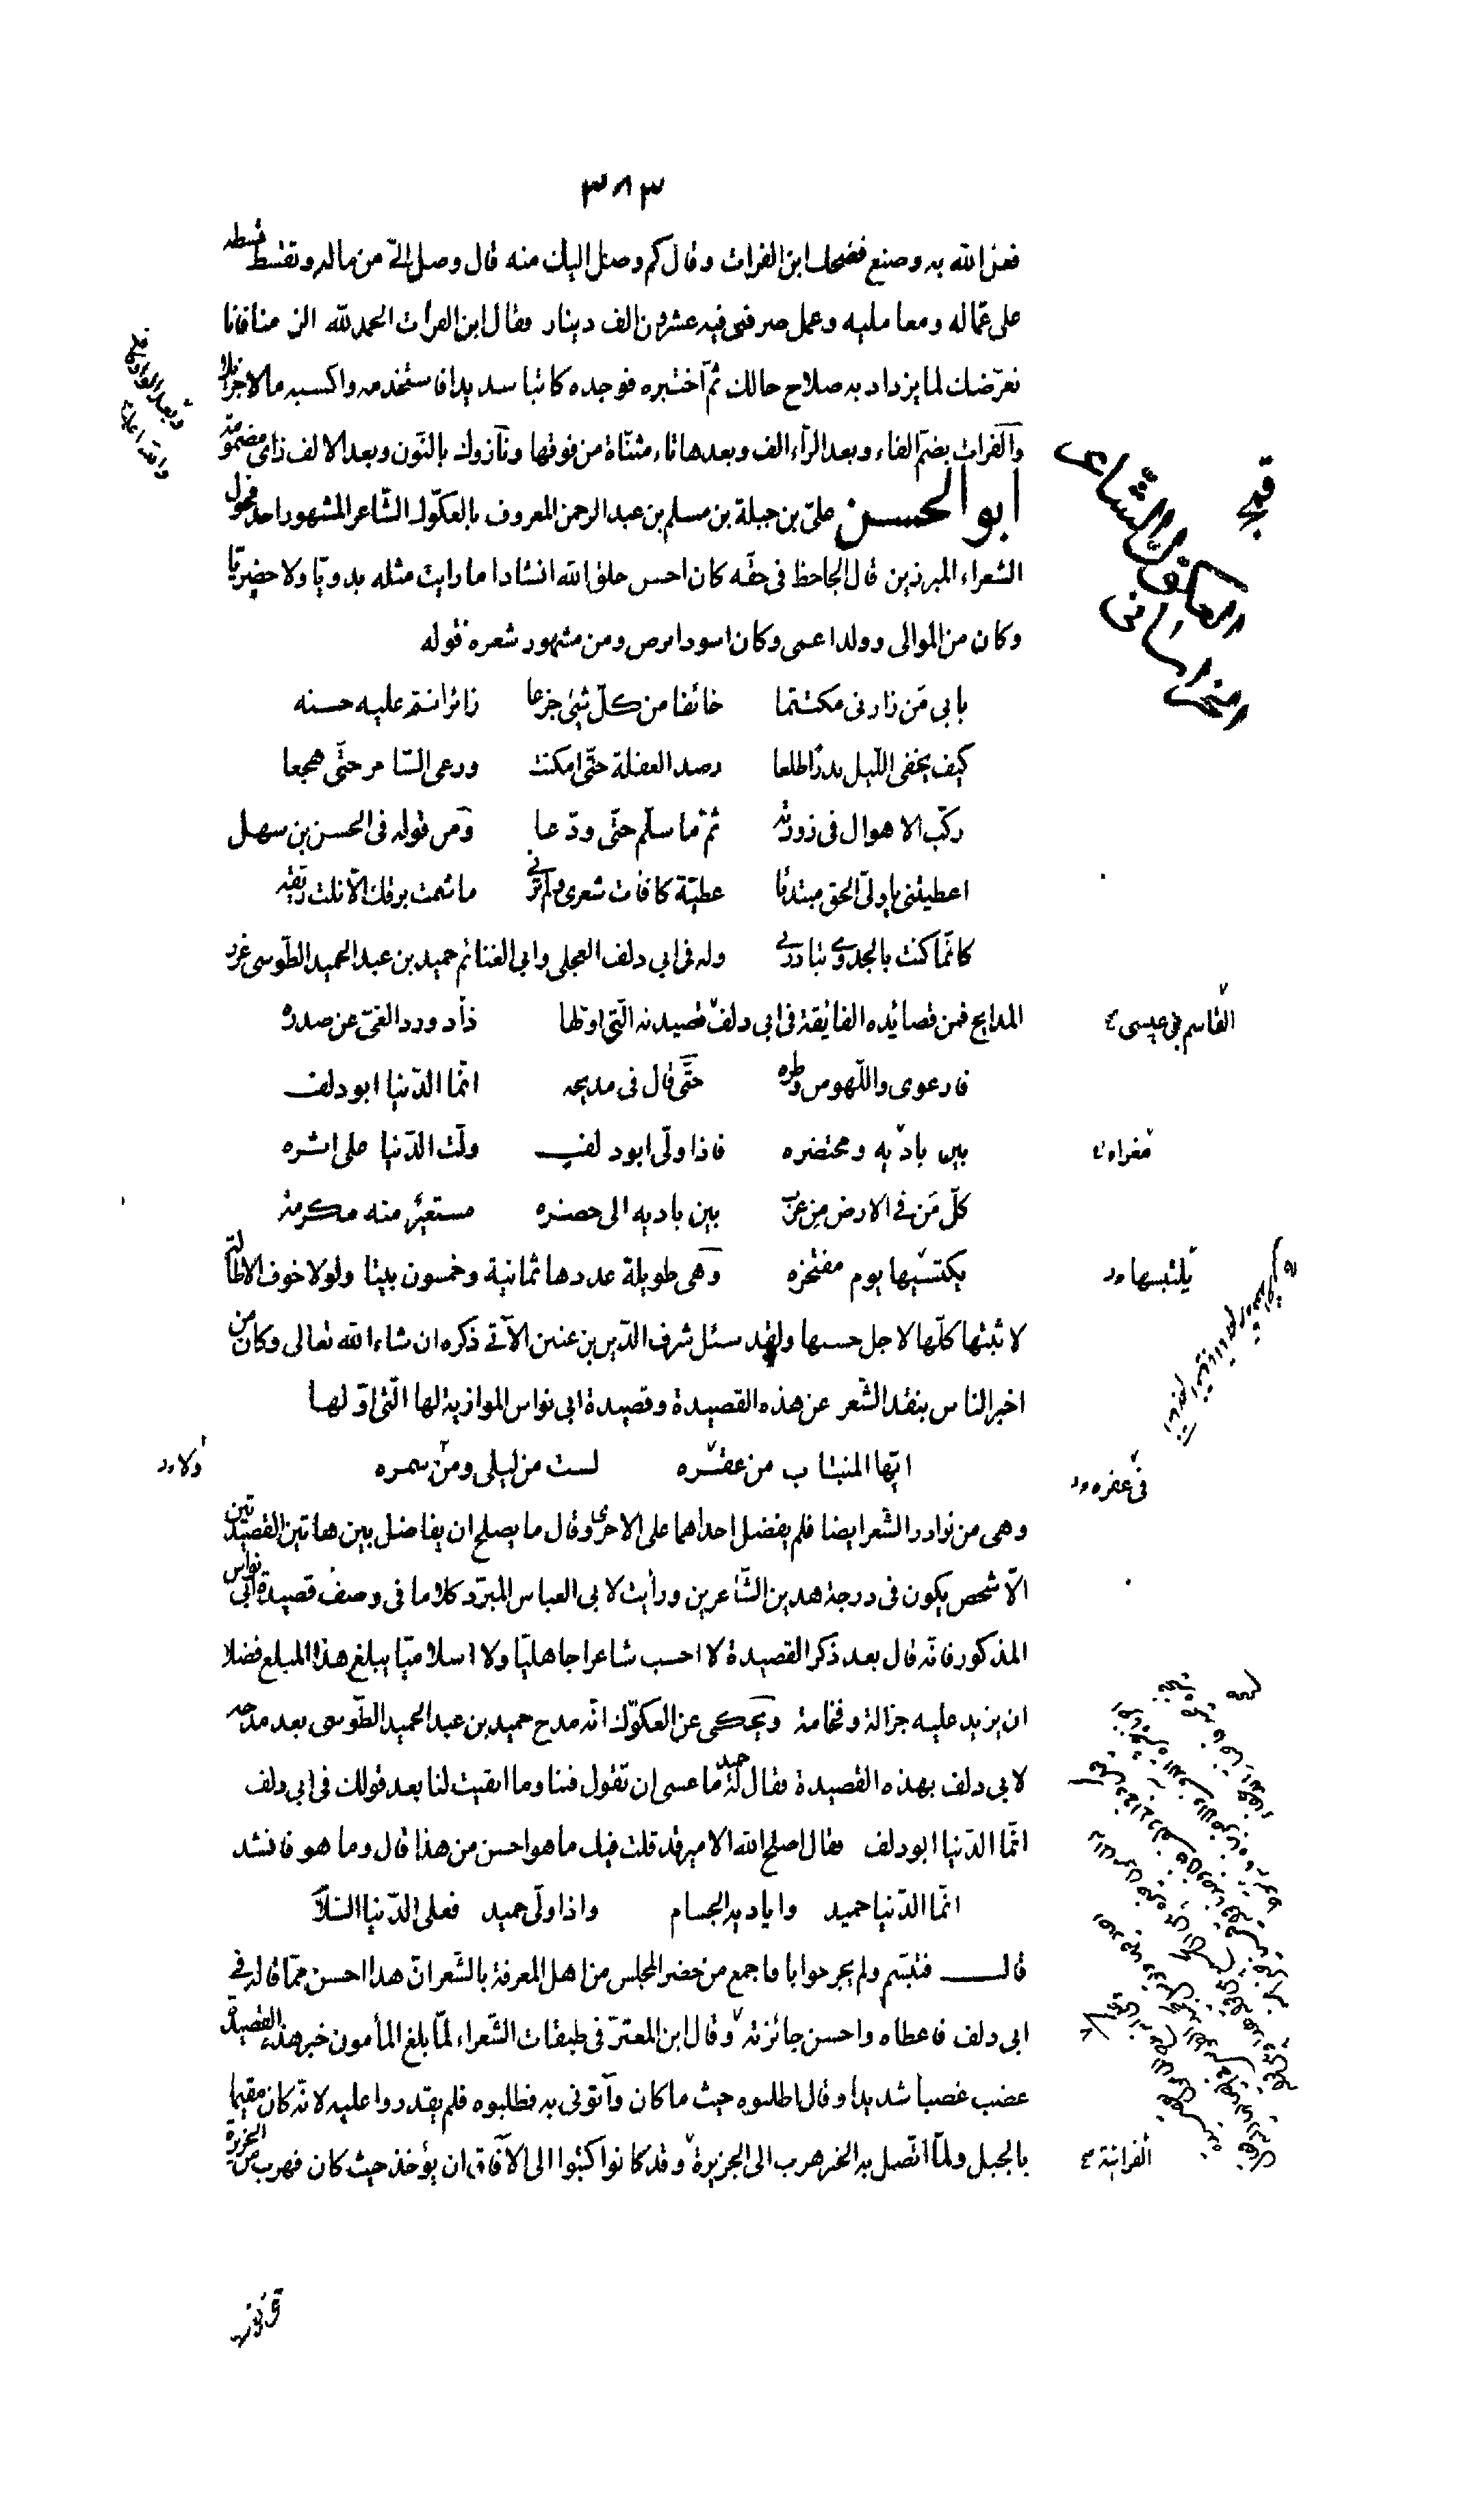 ٣٨٣
فعل الله به وصنع فضحك ابن الفرات وقال كم وصل اليك منه قال وصل اليّ من ماله وتقسّط قسطه
على عمّاله ومعامليه وعمل صرفي فيه عشرون الف دينار فقال ابن الفرات الحمد لله
تعرّضك لما يزداد به صلاح حالك ثمّ اختبره فوجده كاتبا سديدا فاستخدمه واكسبه مالا جزيلا
والفرات بضمّ الفاء وبعد الرّاء الف وبعدها تاء مثنّاة من فوقها ونازوك بالنّون وبعد الالف زاى مضمومة
ابو الحسن علىّ بن جبلة بن مسلم بن عبد الرحمن المعروف بالعكوّك الشّاعر المشهور احد فحول
الشعراء المبرزين قال الجاحظ فى حقّه كان احسن خلق الله انشادا ما رايت مثله بدويّا ولا حضريّا
وكان من الموالى وولد اعمى وكان اسود ابرص ومن مشهور شعره قوله
بابى مَن زارنى مكتتما خائفا من كلّ شئ جزعا زائرا نمّ عليه حسنه
كيف يخفى اللّيل بدرًا طلعا رصد الغفلة حتّى امكنت ورعى السّامر حتّى هجعا
ركب الاهوال فى زورته ثمّ ما سلّم حتّى ودّعا ومن قوله فى الحسن بن سهل
اعطيتنى يا ولىّ الحق مبتدئا عطيّة كافأت شعرى ولم ترنى ما شمت برقك الّا نلت ريّقه
كانّما كنت بالجدوى تبادرنى وله فى ابى دلف العجلى وابى الغنائم حميد بن عبد الحميد الطّوسى غرر
المدايح فمن قصائده الفائقة فى ابى دلف قصيدته الّتى اوّلها ذاد ورد الغىّ عن صدره
فارعوى واللّهو من وطره حتّى قال فى مديحه انّما الدّنيا ابو دلف
بين باديه ومحتضره فاذا ولّى ابو دلف ولّت الدّنيا على اثره
كلّ مَن فى الارض من عرب بين باديه الى حضره مستعير منه مكرمة
يكتسبها يوم مفتخره وهى طويلة عددها ثمانية وخمسون بيتا ولولا خوف الاطالة
لاثبتها كلّها لاجل حسنها ولقد سئل شرف الدّين بن عنين الآتى ذكره ان شاء الله تعالى وكان من
اخبر الناس بنقد الشّعر عن هذه القصيدة وقصيدة ابى نواس الموازية لها الّتى اوّلها
ايّها المنتاب من عفره لست من ليلى ومن سمره
وهى من نوادر الشعر ايضا فلم يفضل احداهما على الاخرى وقال ما يصلح ان يفاضل بين هاتين القصيدتين
الّا شخص يكون فى درجة هدين الشّاعرين ورأيت لابى العباس المبرّد كلاما فى وصف قصيدة ابى نواس
المذكور فانّه قال بعد ذكر القصيدة لا احسب شاعرا جاهليّا ولا اسلاميّا يبلغ هذا المبلغ فضلا
ان يزيد عليه جزالة وفخامة ويحكى عن العكوّك انّه مدح حميد بن عبد الحميد الطّوسى بعد مدحه
لابى دلف بهذه القصيدة فقال له حميد ما عسى ان تقول فينا وما ابقيت لنا بعد قولك فى ابى دلف
انّما الدّنيا ابو دلف فقال اصلح الله الامير قد قلت فيك ما هو احسن من هذا قال وما هو فانشد
انّما الدّنيا حميد واياديه الجسام واذا ولّى حميد فعلى الدّنيا السّلام
قال فتبسّم ولم يحر جوابا فاجمع من حضر المجلس من اهل المعرفة بالشّعر انّ هذا احسن ممّا قاله فى
ابى دلف فاعطاه واحسن جائزته وقال ابن المعتزّ فى طبقات الشّعراء لمّا بلغ المأمون خبر هذه القصيدة
غضب غضبا شديدا وقال اطلبوه حيث ما كان وآتونى به فطلبوه فلم يقدروا عليه لانّه كان مقيما
بالجبل ولمّا اتّصل به الخبر هرب الى الجزيرة وقد كانوا كتبوا الى الآفاق ان يؤخذ حيث كان فهرب من الجزيرة
العكوك الشاعر
الخراسانى
القاسم بن عيسى
يلتبسها
فى عفره
ولا
الفراتية